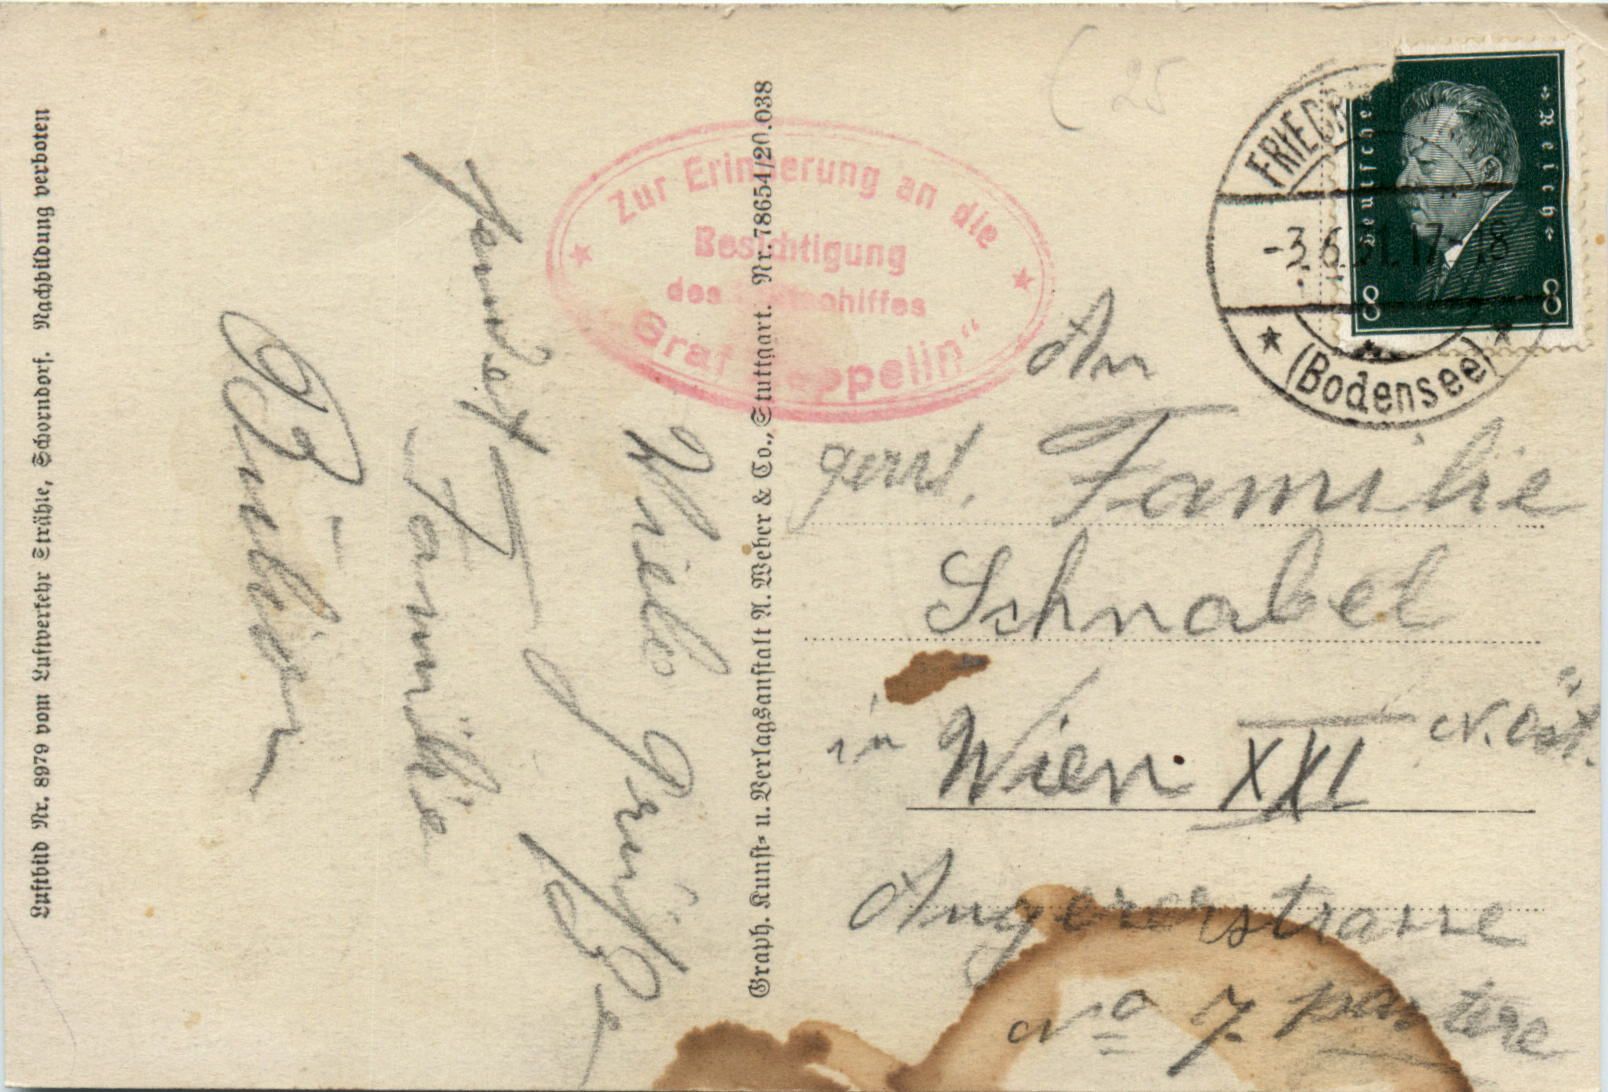 Luftbild Nr. 8979 vom Luftverkehr Strähle, Schorndorf. Nachbildung verboten
Viele Grüße
sendet
Familie
Graph. Kunst- u. Verlagsanstalt A. Weber & Co., Stuttgart. Nr. 78654/20.038
Zur Erinnerung an die
Besichtigung
des Luftschiffes
"Graf Zeppelin"
( 25
Deutsches Reich
8 8
FRIEDR
-3.6.31.17-18
(Bodensee)
An
Familie
Schnabel
in Wien XXI N. Öst.
Angererstrasse
No 7. partere